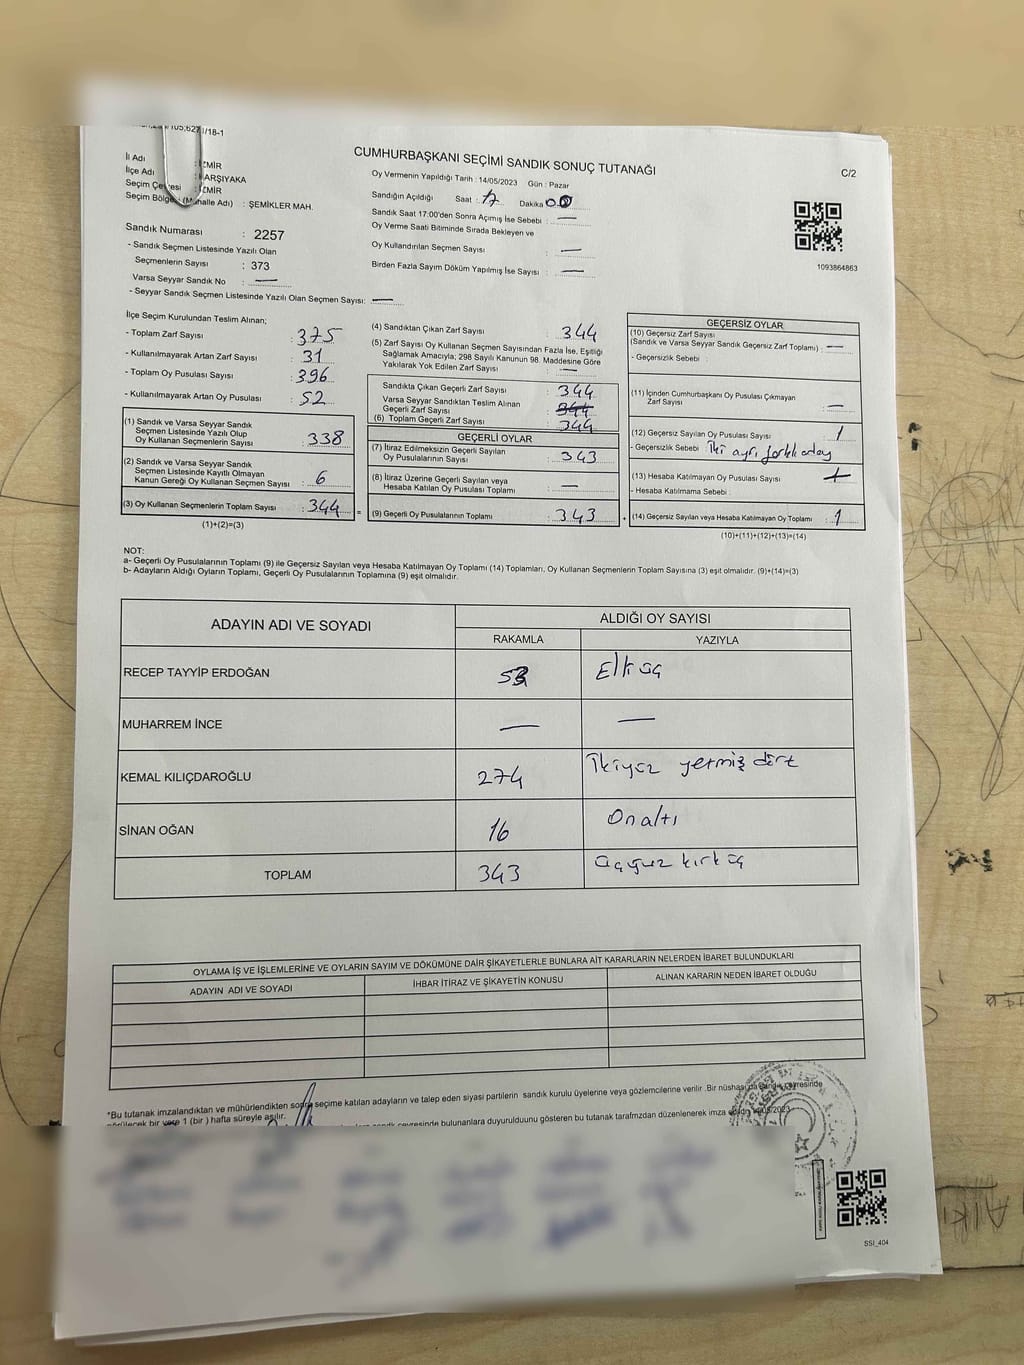 /18-1
CUMHURBAŞKANI SEÇİMİ SANDIK SONUÇ TUTANAĞI
C/2
İl Adı : İZMİR
İlçe Adı : KARŞIYAKA
Seçim Çevresi : İZMİR
Seçim Bölgesi (Mahalle Adı) : ŞEMİKLER MAH.
Sandık Numarası : 2257
- Sandık Seçmen Listesinde Yazılı Olan
Seçmenlerin Sayısı : 373
Varsa Seyyar Sandık No : —
- Seyyar Sandık Seçmen Listesinde Yazılı Olan Seçmen Sayısı: —
Oy Vermenin Yapıldığı Tarih : 14/05/2023 Gün : Pazar
Sandığın Açıldığı Saat : 17 Dakika 00
Sandık Saat 17:00'den Sonra Açımış İse Sebebi : —
Oy Verme Saati Bitiminde Sırada Bekleyen ve
Oy Kullandırılan Seçmen Sayısı : —
Birden Fazla Sayım Döküm Yapılmış İse Sayısı : —
1093864863
İlçe Seçim Kurulundan Teslim Alınan;
- Toplam Zarf Sayısı : 375
- Kullanılmayarak Artan Zarf Sayısı : 31
- Toplam Oy Pusulası Sayısı : 396
- Kullanılmayarak Artan Oy Pusulası : 52
(1) Sandık ve Varsa Seyyar Sandık
Seçmen Listesinde Yazılı Olup
Oy Kullanan Seçmenlerin Sayısı : 338
(2) Sandık ve Varsa Seyyar Sandık
Seçmen Listesinde Kayıtlı Olmayan
Kanun Gereği Oy Kullanan Seçmen Sayısı : 6
(3) Oy Kullanan Seçmenlerin Toplam Sayısı : 344 =
(1)+(2)=(3)
(4) Sandıktan Çıkan Zarf Sayısı : 344
(5) Zarf Sayısı Oy Kullanan Seçmen Sayısından Fazla İse, Eşitliği
Sağlamak Amacıyla; 298 Sayılı Kanunun 98. Maddesine Göre
Yakılarak Yok Edilen Zarf Sayısı : —
Sandıkta Çıkan Geçerli Zarf Sayısı : 344
Varsa Seyyar Sandıktan Teslim Alınan
Geçerli Zarf Sayısı : 344
(6) Toplam Geçerli Zarf Sayısı : 344
GEÇERLİ OYLAR
(7) İtiraz Edilmeksizin Geçerli Sayılan
Oy Pusulalarının Sayısı : 343
(8) İtiraz Üzerine Geçerli Sayılan veya
Hesaba Katılan Oy Pusulası Toplamı : —
(9) Geçerli Oy Pusulalarının Toplamı : 343 +
GEÇERSİZ OYLAR
(10) Geçersiz Zarf Sayısı
(Sandık ve Varsa Seyyar Sandık Geçersiz Zarf Toplamı) : —
- Geçersizlik Sebebi :
(11) İçinden Cumhurbaşkanı Oy Pusulası Çıkmayan
Zarf Sayısı : —
(12) Geçersiz Sayılan Oy Pusulası Sayısı : 1
- Geçersizlik Sebebi : İki ayrı farklı aday
(13) Hesaba Katılmayan Oy Pusulası Sayısı : —
- Hesaba Katılmama Sebebi :
(14) Geçersiz Sayılan veya Hesaba Katılmayan Oy Toplamı : 1
(10)+(11)+(12)+(13)=(14)
NOT:
a- Geçerli Oy Pusulalarının Toplamı (9) ile Geçersiz Sayılan veya Hesaba Katılmayan Oy Toplamı (14) Toplamları, Oy Kullanan Seçmenlerin Toplam Sayısına (3) eşit olmalıdır. (9)+(14)=(3)
b- Adayların Aldığı Oyların Toplamı, Geçerli Oy Pusulalarının Toplamına (9) eşit olmalıdır.
ADAYIN ADI VE SOYADI ALDIĞI OY SAYISI
RAKAMLA YAZIYLA
RECEP TAYYİP ERDOĞAN 53 Elli üç
MUHARREM İNCE — —
KEMAL KILIÇDAROĞLU 274 İkiyüz yetmiş dört
SİNAN OĞAN 16 Onaltı
TOPLAM 343 üçyüz kırk üç
OYLAMA İŞ VE İŞLEMLERİNE VE OYLARIN SAYIM VE DÖKÜMÜNE DAİR ŞİKAYETLERLE BUNLARA AİT KARARLARIN NELERDEN İBARET BULUNDUKLARI
ADAYIN ADI VE SOYADI İHBAR İTİRAZ VE ŞİKAYETİN KONUSU ALINAN KARARIN NEDEN İBARET OLDUĞU
*Bu tutanak imzalandıktan ve mühürlendikten sonra seçime katılan adayların ve talep eden siyasi partilerin sandık kurulu üyelerine veya gözlemcilerine verilir .Bir nüshası da sandık çevresinde
görülecek bir yere 1 (bir ) hafta süreyle asılır.
sandık çevresinde bulunanlara duyurulduğunu gösteren bu tutanak tarafımızdan düzenlenerek imza
SSI_404